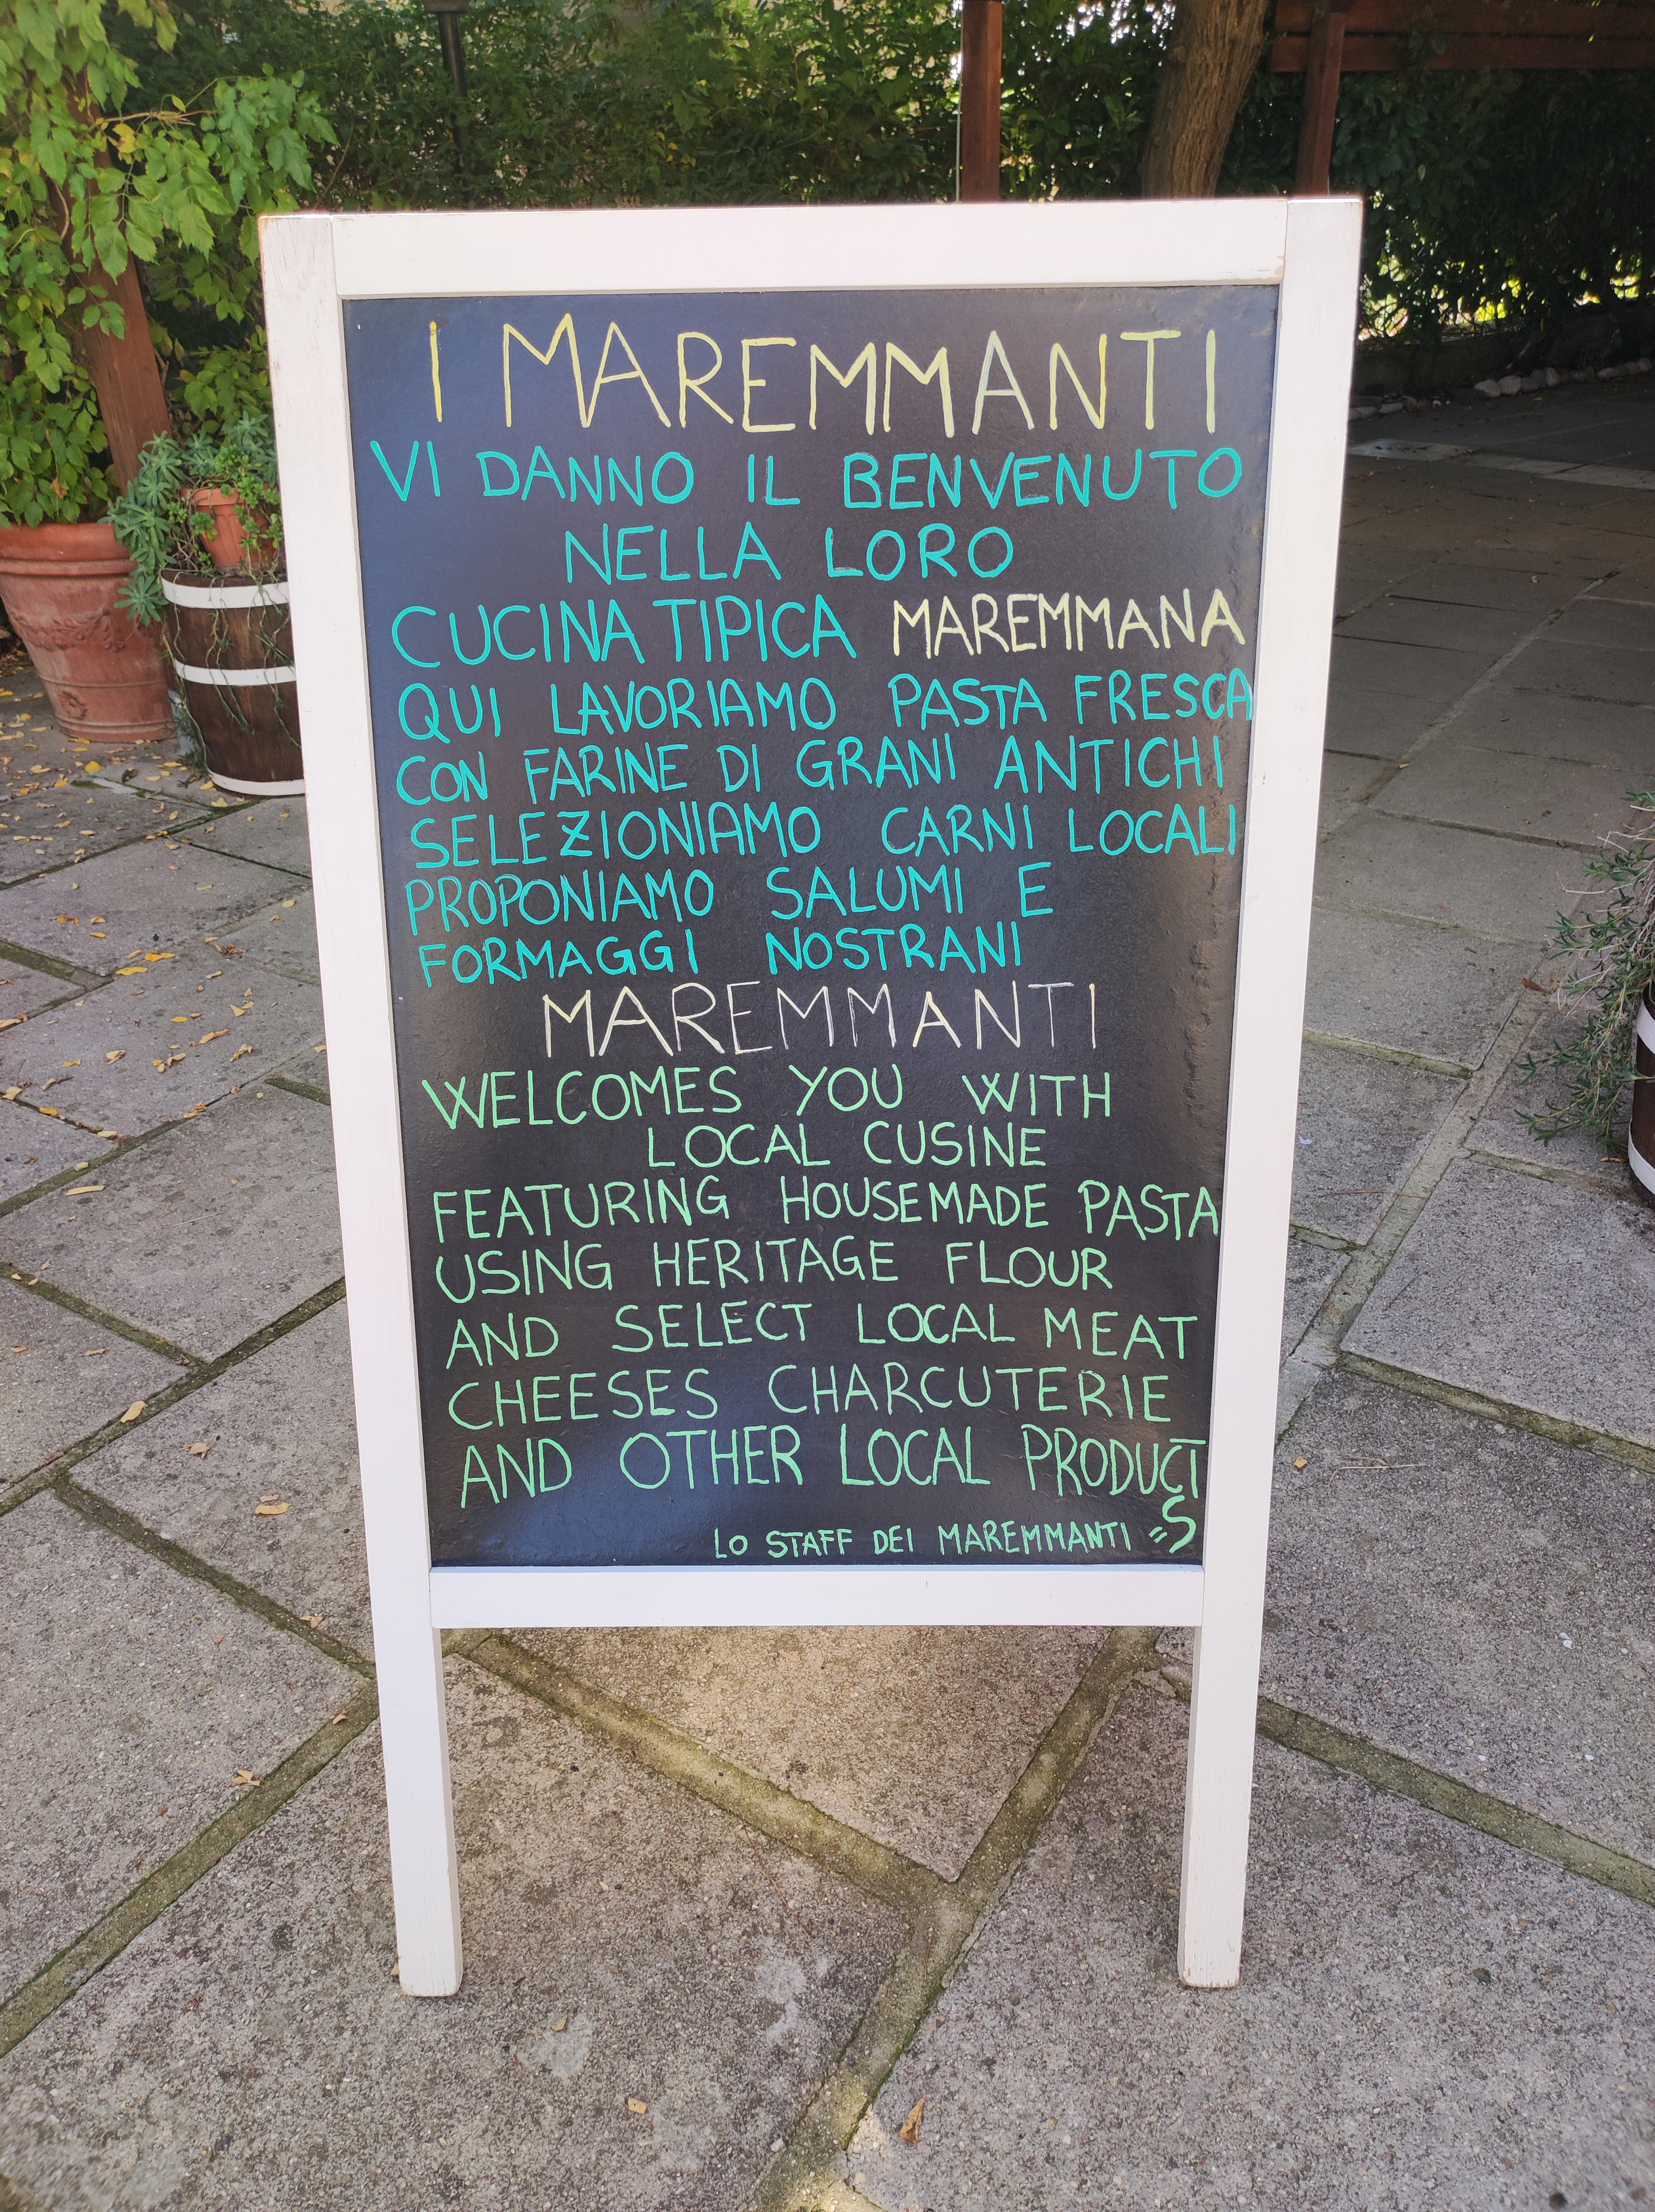 I MAREMMANTI
VI DANNO IL BENVENUTO
NELLA LORO
CUCINA TIPICA MAREMMANA
QUI LAVORIAMO PASTA FRESCA
CON FARINE DI GRANI ANTICHI
SELEZIONIAMO CARNI LOCALI
PROPONIAMO SALUMI E
FORMAGGI NOSTRANI
MAREMMANTI
WELCOMES YOU WITH
LOCAL CUSINE
FEATURING HOUSEMADE PASTA
USING HERITAGE FLOUR
AND SELECT LOCAL MEAT
CHEESES CHARCUTERIE
AND OTHER LOCAL PRODUCT
=S
LO STAFF DEI MAREMMANTI